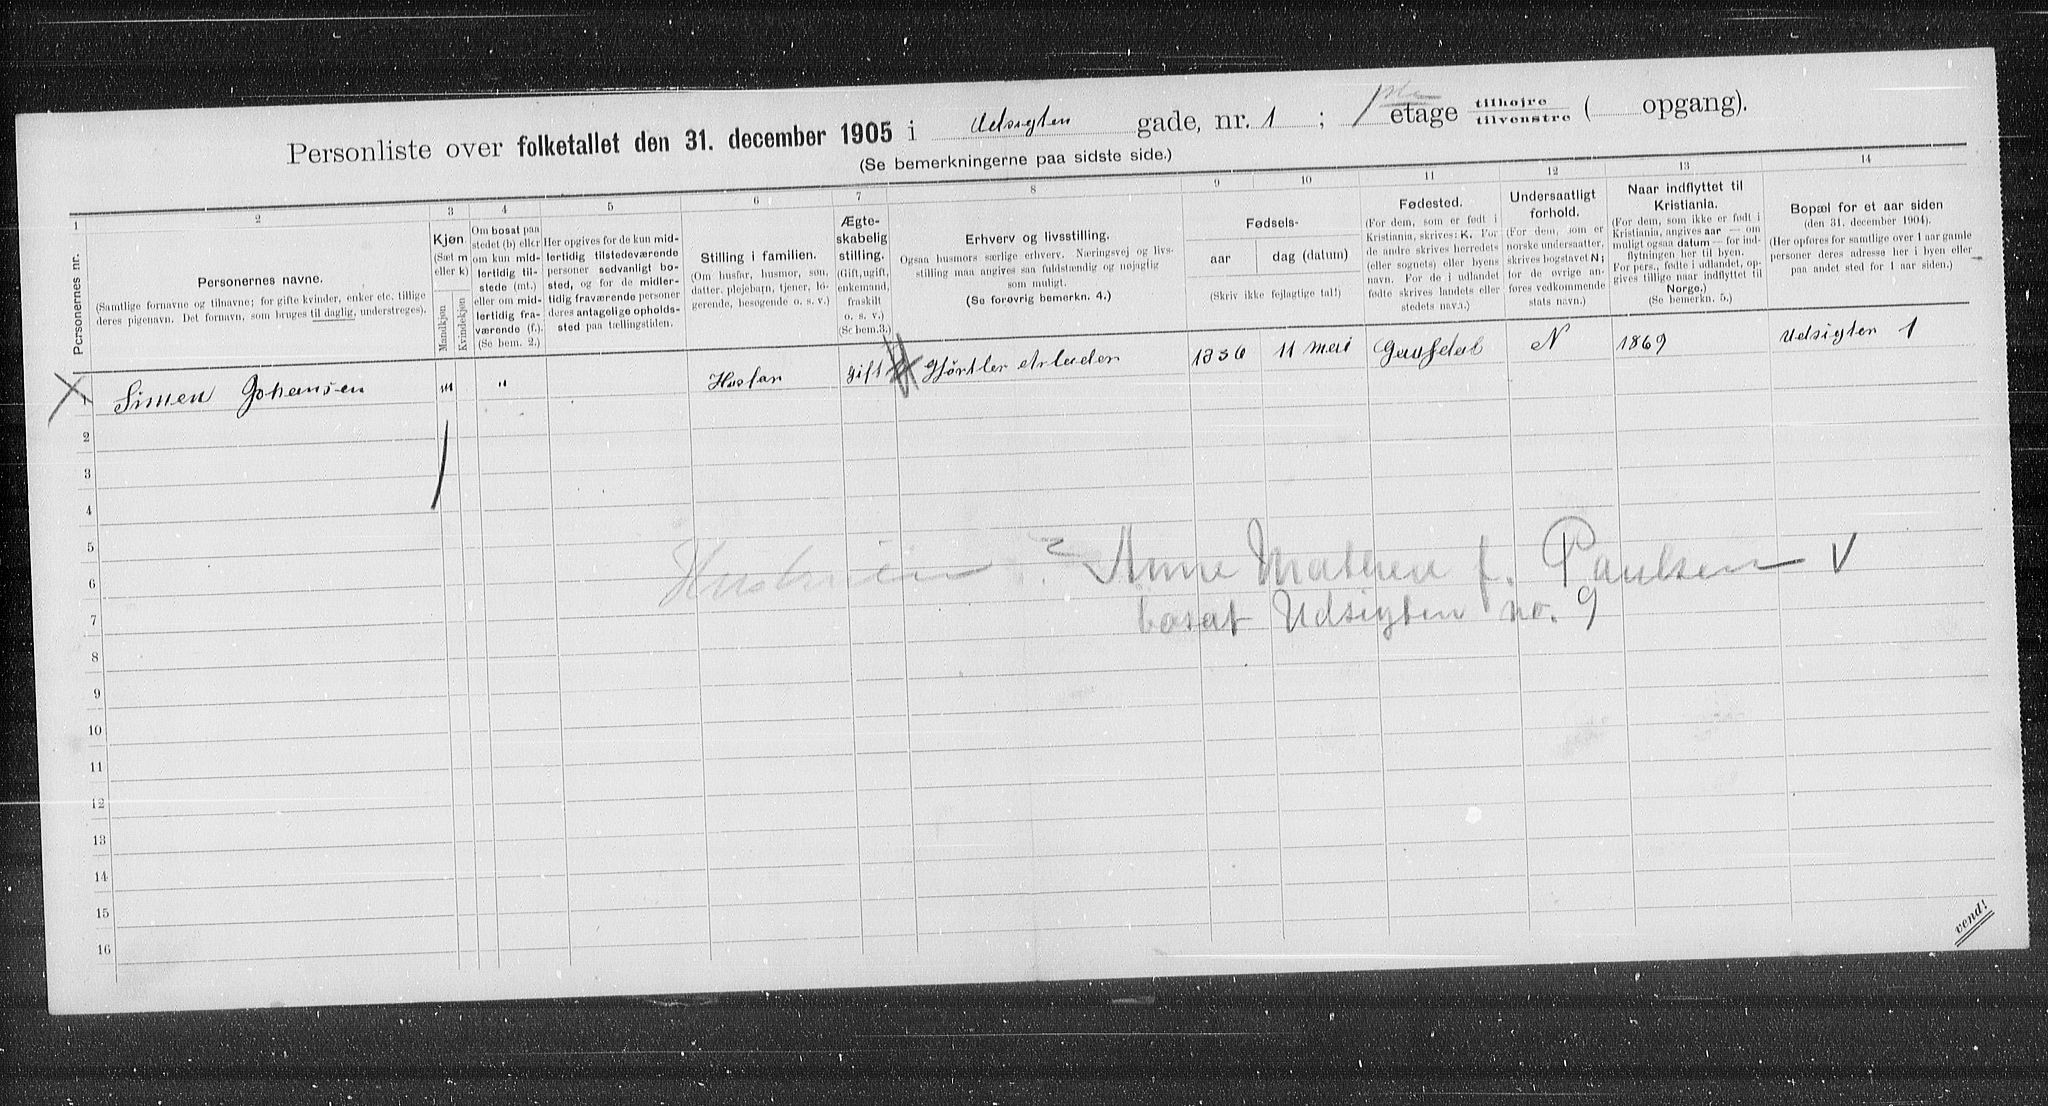 Personliste over folketallet den 31. december 1905 i Udsigten gade, nr. 1 ; 1ste etage tilhøjre tilvenstre ( opgang).
(Se bemerkningerne paa sidste side.)
1 2 3 4 5 6 7 8 9 10 11 12 13 14
Personernes nr.
Personernes navne.
(Samtlige fornavne og tilnavne; for gifte kvinder, enker etc. tillige
deres pigenavn. Det fornavn, som bruges til daglig, understreges).
Kjøn
(Sæt m
eller k)
Mandkjøn
Kvindekjøn
Om bosat paa
stedet (b) eller
om kun mid-
lertidig til-
stede (mt.)
eller om mid-
lertidig fra-
værende (f.).
(Se bem. 2.)
Her opgives for de kun mid-
lertidig tilstedeværende
personer sedvanligt bo-
sted, og for de midler-
tidig fraværende personer
deres antagelige opholds-
sted paa tællingstiden.
Stilling i familien.
(Om husfar, husmor, søn,
datter, plejebarn, tjener, lo-
gerende, besøgende o. s. v.)
Ægte-
skabelig
stilling.
(Gift, ugift,
enkemand,
fraskilt
o. s. v.)
(Se bem.3.)
Erhverv og livsstilling.
Ogsaa husmors særlige erhverv. Næringsvej og livs-
stilling maa angives saa fuldstændig og nøjagtig
som muligt.
(Se forøvrig bemerkn. 4.)
Fødsels-
aar dag (datum)
(Skriv ikke fejlagtige tal!)
Fødested.
(For dem, som er født i
Kristiania, skrives: K. For
de andre skrives herredets
(eller sognets) eller byens
navn. For de i udlandet
fødte skrives landets eller
stedets navn.)
Undersaatligt
forhold.
(For dem, som er
norske undersaatter,
skrives bogstavet N;
for de øvrige an-
føres vedkommende
stats navn.)
Naar indflyttet til
Kristiania.
(For dem, som ikke er født i
Kristiania, angives aar — om
muligt ogsaa datum — for ind-
flytningen her til byen.
For pers., fødte i udlandet, op-
gives tillige naar indflyttet til
Norge.)
(Se bemerkn. 5.)
Bopæl for et aar siden
(den 31. december 1904).
(Her opføres for samtlige over 1 aar gamle
personer deres adresse her i byen eller
paa andet sted for 1 aar siden.)
1 Simen Johansen m " Husfar Gift Arbeider 1836 11 Mai Gausdal N 1869 Udsigten 1
2
3
4
5
6 Hustruen: Anne Mathea f. Paulsen V
7 bosat Udsigten no. 9
8
9
10
11
12
13
14
15
16
vend!